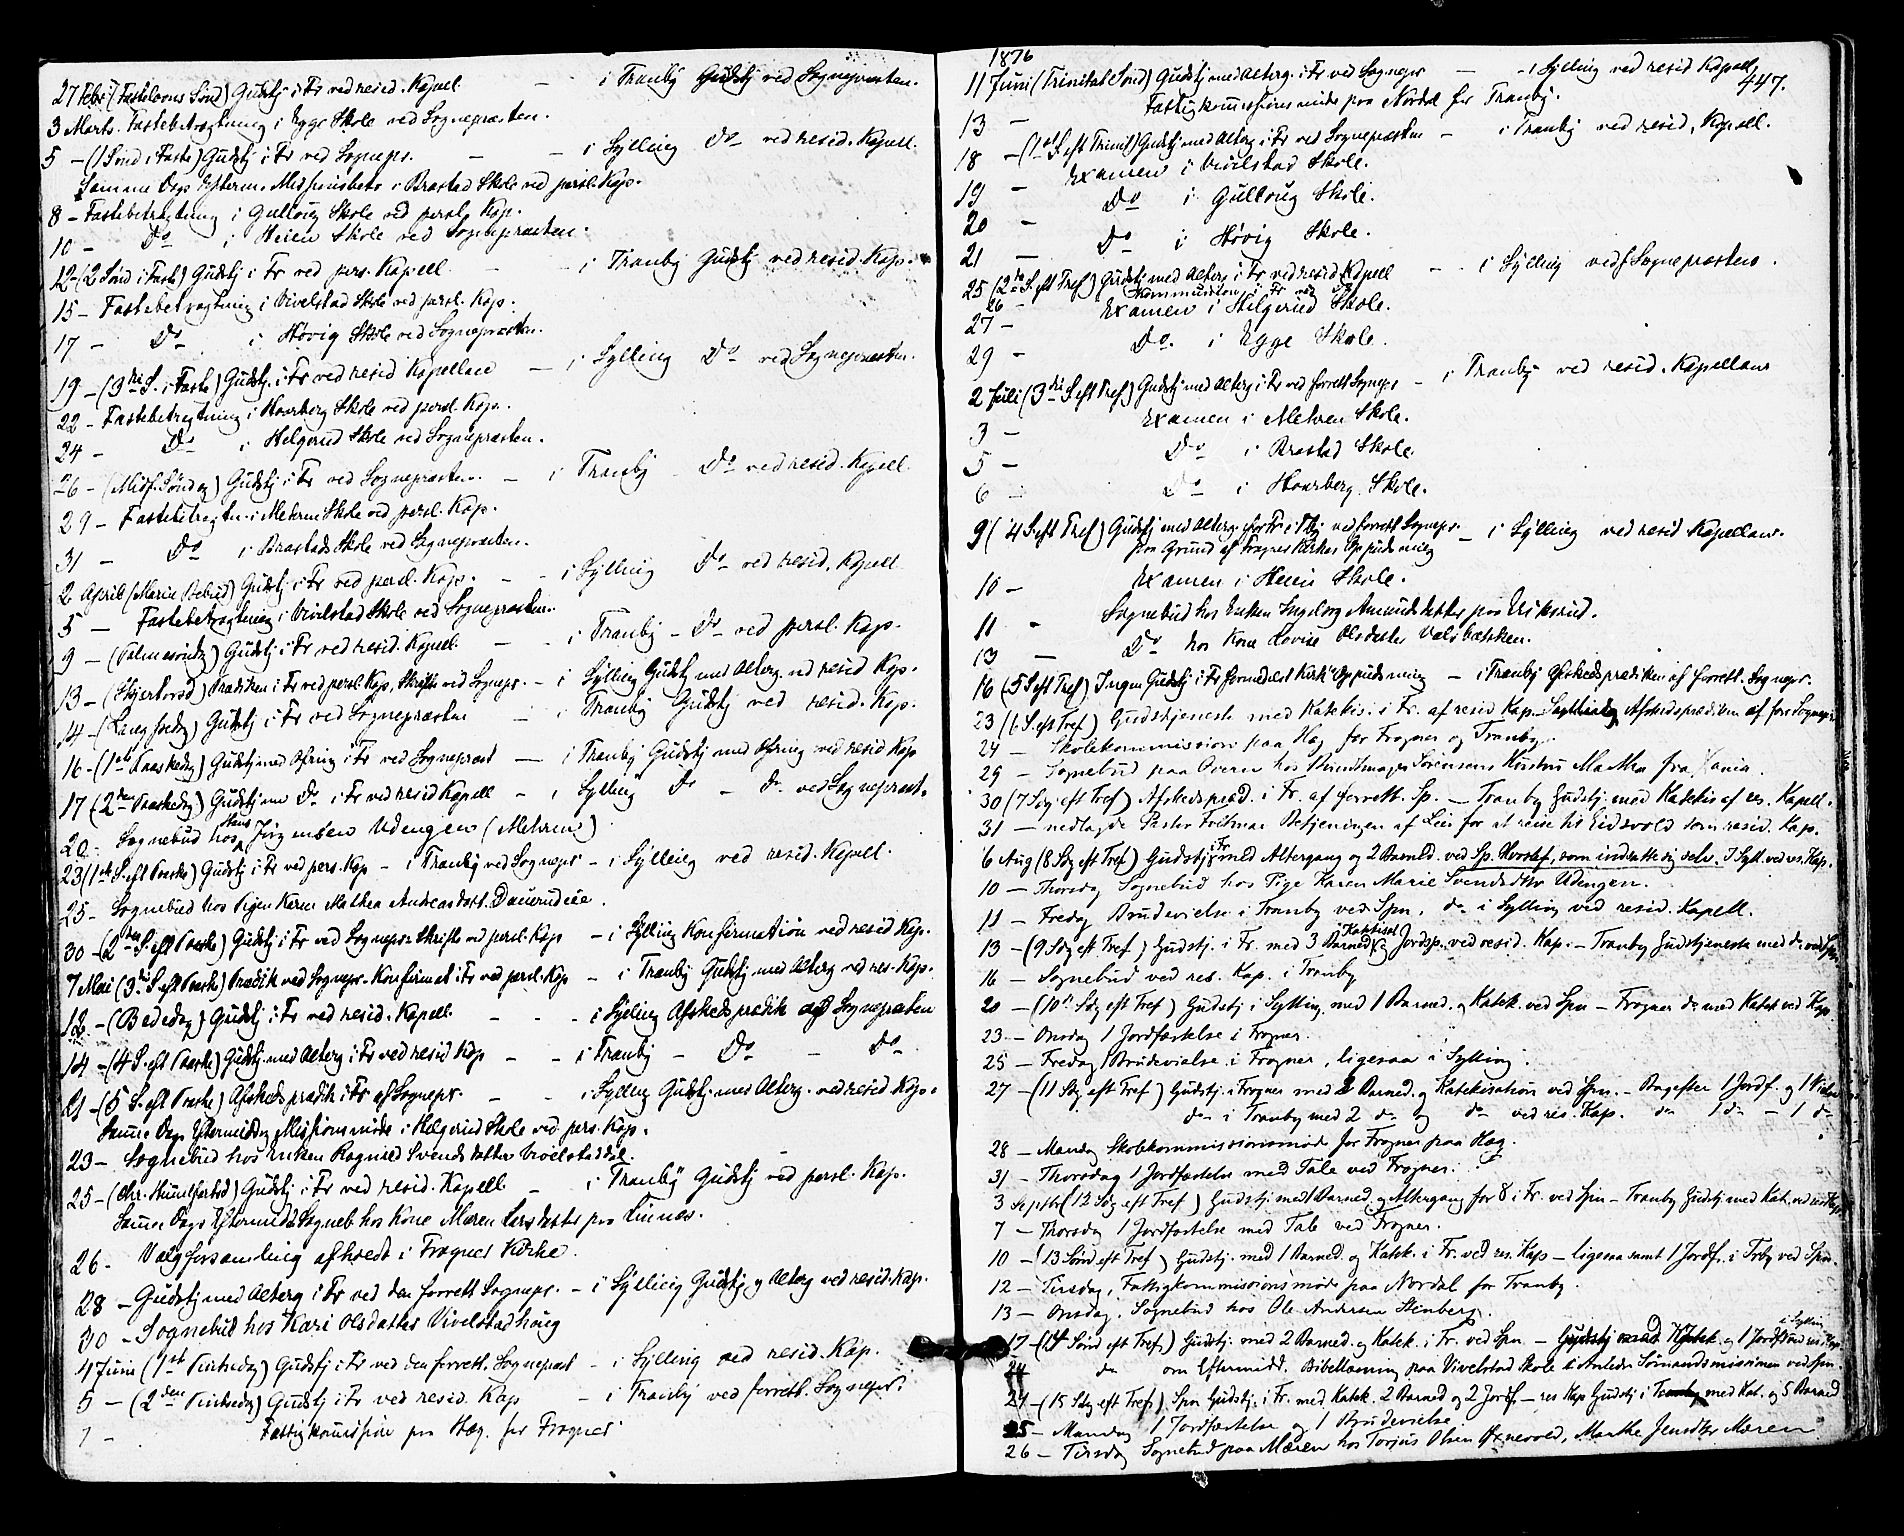 27 Febr (Fastelavns Sønd) Gudstj i Fr ved resid. Kapell. — i Tranby Gudstj ved Sognepræsten.
3 Marts. Fastebetragtning i Egge Skole ved Sognepræsten.
5 — (1 Sønd i Faste) Gudstj i Fr ved Sognepr. — — i Sylling Do ved resid. Kapell.
Samme Dags Efterm. Missionsbets i Brastad Skole ved persl. Kap.
8 — Fastebetragtning i Gullaug Skole ved persl. Kap.
10 — Do i Heien Skole ved Sognepræsten.
12 — (2 Sønd i Faste) Gudstj i Fr ved pers. Kapell — — i Tranby Gudstj ved resid. Kap.
15 — Fastebetragtning i Vivelstad Skole ved persl. Kap.
17 — Do i Høvig Skole ved Sognepræsten.
19 — (3die S. i Faste) Gudstj. i Fr ved resid Kapellan — i Sylling Do ved Sognepræsten.
22 — Fastebetragtning i Haarberg Skole ved persl. Kap.
24 — Do i Helgerud Skole ved Sognepræsten.
26 — (Midf. Søndag) Gudstj i Fr ved Sognepræsten. — i Tranby — Do ved resid. Kapell.
29 — Fastebetragtn. i Mehren Skole ved persl. Kap.
31 — Do i Brastads Skole ved Sognepræsten.
2 April (Mariæ Bebud) Gudstj i Fr ved persl. Kap. — — i Sylling Do ved resid. Kapell
5 — Fastebetragtning i Vivelstad Skole ved Sognepræsten.
9 — (Palmesøndag) Gudstj i Fr ved resid. Kapell. — — i Tranby — Do ved persl. Kap.
13 — (Skjertorsd) Prædiken i Fr ved persl Kap, Skrifte ved Sognepr. — i Sylling Gudstj med Alterg. ved resid Kap.
14 — (Langfredag) Gudstj i Fr ved Sognepræsten — i Tranby Gudstj ved resid. Kap.
16 — (1ste Paaskedag) Gudstj med Ofring i Fr ved Sognepræst — i Tranby Gudstj med Ofring ved resid Kap
17 (2den Paaskedag) Gudstj med Do i Fr ved resid Kapell — i Sylling Do — Do ved Sognepræst.
20. Sognebud hos Hans Jørgensen Udengen (Mehren)
23 (1ste S. eft Paaske) Gudstj i Fr ved pers. Kap — i Tranby ved Sognepr — i Sylling ved resid. Kapell.
25 — Sognebud hos Pigen Karen Mathea Andreasdatt. Dauerudeie.
30 — (2den S. eft Paaske) Gudstj i Fr ved Sognepr. Skrifte ved persl. Kap — i Sylling Konfirmation ved resid Kap.
7 Mai (3die S. eft Paaske) Prædik ved Sognepr. Konfirmat i Fr ved persl. Kap — i Tranby Gudstj med Alterg ved res. Kap.
12 — (Bededag) Gudstj i Fr ved resid. Kapell. — — i Sylling Afskedsprædik af Sognepræsten
14 — (4 S. eft Paaske) Gudstj. med Alterg i Fr ved resid Kap — — i Tranby — Do — Do
21 — (5 S. eft Paaske) Afskedsprædik i Fr af Sognepr. — — i Sylling Gudstj. med Alterg. ved resid Kap.
Samme Dags Eftermiddag Missionsmøde i Helgerud Skole ved pers. Kap.
23 — Sognebud hos Enken Ragnild Svendsdatter Vivelstaddal.
25 — (Chr. Himmelfartsd) Gudstj i Fr ved resid. Kapell. — i Tranby Gudstj ved persl. Kap.
Samme Dags Eftermidd Sogneb hos Kone Maren Larsdatter paa Linnes.
26. Valgforsamling afholdt i Frogner Kirke.
28 — Gudstj med Alterg i Fr ved den forrett Sognepr. — i Sylling Gudstj og Alterg ved resid. Kap.
30 — Sognebud hos Kari Olsdatter Vivelstadhaug
4 Juni (1ste Pintsedag) Gudstj i Fr ved den forrett. Sognepræst — i Sylling ved resid. Kap.
5 — (2den Pintsedag) Gudstj i Fr ved resid. Kap — i Tranby ved forrett. Sognepr.
7 — Fattigkommission paa Hæg. for Frogner
1876
447.
11 Juni (Trinitat. Sønd) Gudstj med Alterg. i Fr ved Sognepr — i Sylling ved resid Kapell,
13 — Fattigkommissionsmøde paa Nordal for Tranby.
18 — (1ste S. eft Trinit) Gudstj med Alterg i Fr ved Sognepræsten — i Tranby ved resid. Kapell.
19 — Examen i Vivelstad Skole.
20 — Do i Gullaug Skole.
21 — Do i Høvig Skole.
25 (2den S. eft Tref) Gudstj med Alterg i Fr ved resid Kapell — i Sylling ved Sognepræsten.
26 Kommunion i Fr ved
27 — Examen i Helgerud Skole.
29 — Do. i Egge Skole.
2 Juli (3die S eft Tref) Gudstj med Alterg i Fr ved forrett Sognepr — i Tranby ved resid. Kapellan
3 — Examen i Mehren Skole.
5 — Do i Brastad Skole.
6 — Do i Haarberg Skole.
9 (4 S eft Tref) Gudstj med Alterg. for Fr i Tby ved forrett Sognepr. — i Sylling ved resid Kapellan.
paa Grund af Frogner Kirkes Oppudsning
10 — Examen i Heien Skole.
11 — Sognebud hos Enken Ingeborg Amundsdatter paa Eriksrud.
13 — Do hos Kone Lovise Olsdatter Valsbækken.
16 (5 S eft Tref) Ingen Gudstj i Fr formedelst Kirk. Oppudsning — i Tranby Afskedsprædiken af forrett. Sognepr.
23 (6 S. eft Tref) Gudstjeneste med Katekis. i Fr. af resid Kap — Sylling Afskedsprædiken af forr Sognepr
24 — Skolekommission paa Hæg for Frogner og Tranby.
29 — Sognebud paa Overn hos Buntmager Sørensens Hustru Martha fra Xania.
30 (7 Sdg eft Tref) Afskedspræd. i Fr. af forrett. Sp. — Tranby Gudstj. med Katekis af res. Kapell.
31 — nedlagde Pastor Fritzner Betjeningen af Lier for at reise til Eidsvold som resid. Kap.
6 Aug (8 Sdg eft Tref) Gudstj. i Fr. med Altergang og 2 Barned. ved Sp. Hvoslef, som indsatte sig selv. I Syll. ved res. Kap.
10 — Thorsdag Sognebud hos Pige Karen Marie Svendsdtr Udengen.
11 — Fredag Brudevielse i Tranby ved Spn. do i Sylling ved resid. Kapell.
13 — (9 Sdg eft Tref) Gudstj. i Fr. med 3 Barned. Katekisat og Jordsp. ved resid. Kap. — Tranby Gudstjeneste med do ved Spn.
16 — Sognebud ved res. Kap. i Tranby
20 — (10de Sdg eft Tref) Gudstj i Sylling med 1 Barned. og Katek. ved Spn — Frogner do med Katek ved Kap.
23. — Onsdag 1 Jordfæstelse i Frogner.
25 — Fredag Brudevielse i Frogner, ligesaa i Sylling.
27 — (11 Sdg eft Tref) Gudstj. i Frogner med 2 Barned. og Katekisation ved Spn. — Bagefter 1 Jordf. og 1 Vielse
do i Tranby med 2 do og do ved res. Kap. do 1 do — 1 do
28 — Mandag Skolekommissionsmøde for Frogner paa Hæg.
31 — Thorsdag 1 Jordfæstelse med Tale ved Frogner.
3 Septbr (12 Sdg eft Tref) Gudstj. med 1 Barned. og Altergang for 8 i Fr. ved Spn — Tranby Gudstj med Kat. ved res Kap
7 — Thorsdag 1 Jordfæstelse med Tale ved Frogner.
10 — (13 Sønd eft Tref) Gudstj. med 1 Barned. og Katek. i Fr. ved res. Kap — ligesaa samt 1 Jordf. i Trby ved Spn.
12 — Tirsdag, Fattigkommissionsmøde paa Nordal for Tranby.
13 — Onsdag. Sognebud hos Ole Andersen Stenberg.
17 — (14 Sønd eft Tref) Gudstj. med 2 Barned. og Katek. i Fr. ved Spn — Gudstj med Katek. og 1 Jordf. i Sylling ved res Kap
24 do om Eftermidd. Bibellæsning paa Vivelstad Skole i Anledn Sømandsmissionen ved Spn
24 — (15 Sdg eft Tref) Spn Gudstj. i Fr. med Katek. 2 Barned og 2 Jordf — res Kap Gudstj i Tranby med Kat. og 5 Barned
25 — Mandag 1 Jordfæstelse og 1 Brudevielse.
26 — Tirsdag Sognebud paa Mæren hos Torjus Olsen Øxnevold, Marthe Jensdtr Mæren